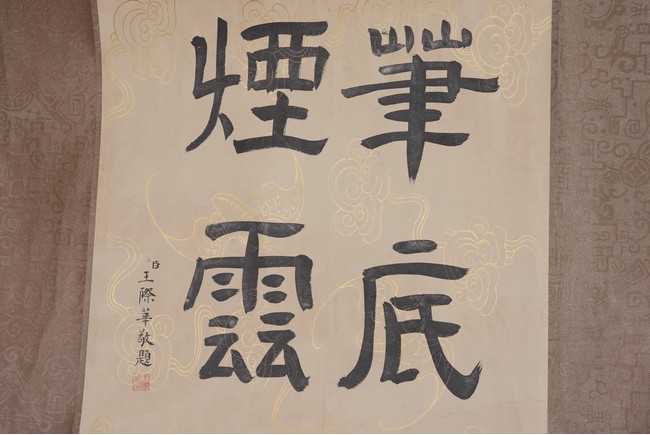 筆底
煙雲
臣王際華敬題